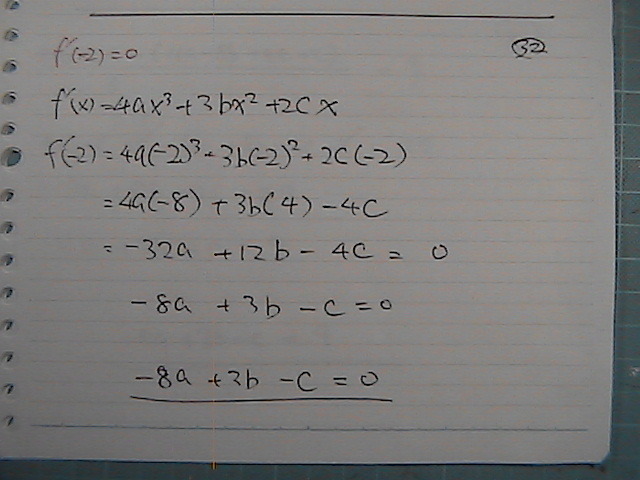 f'(-2)=0
32
f'(x)=4ax³+3bx²+2cx
f'(-2)=4a(-2)³+3b(-2)²+2c(-2)
=4a(-8)+3b(4)-4c
=-32a+12b-4c=0
-8a+3b-c=0
-8a+3b-c=0